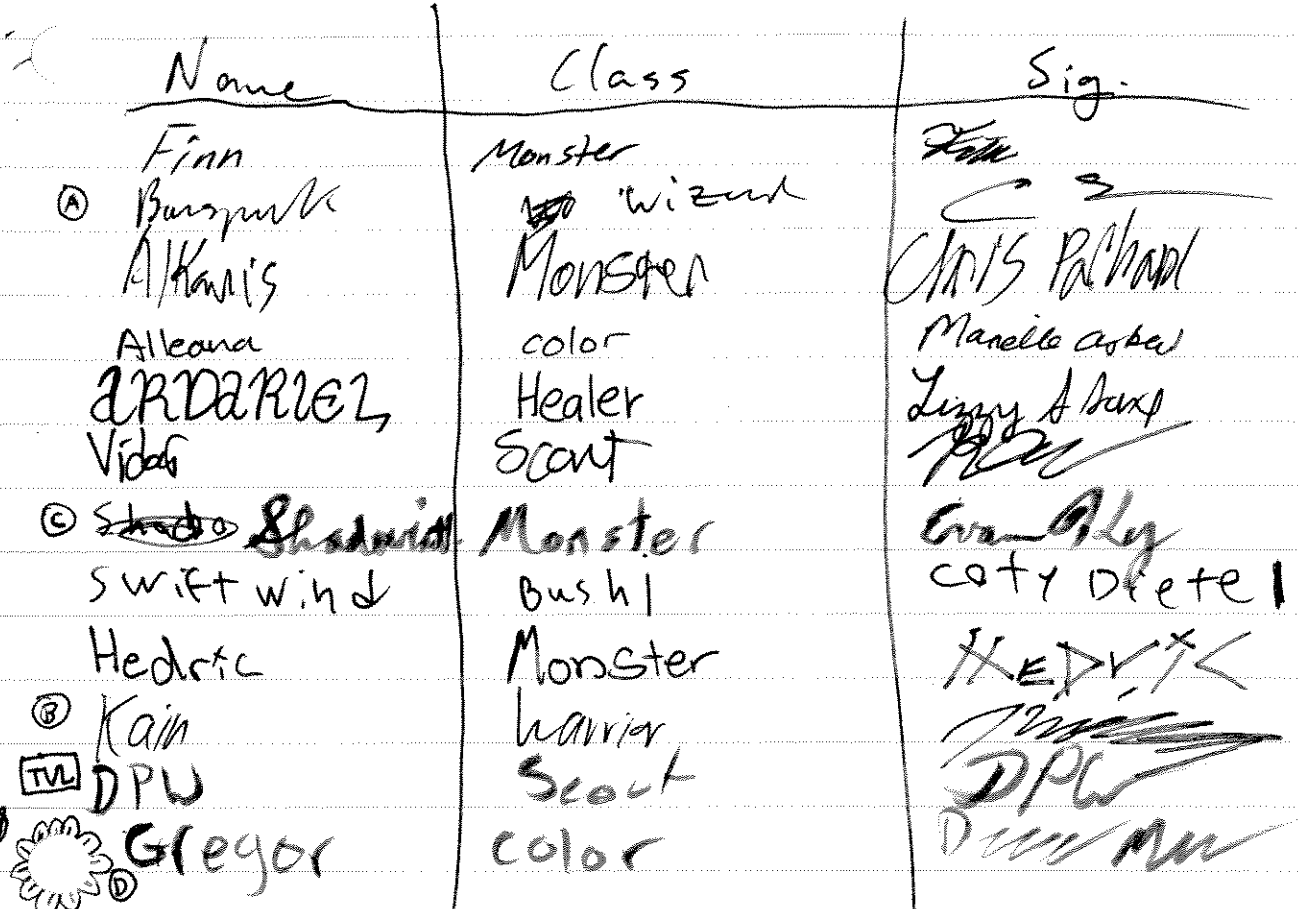 Name Class Sig.
Finn Monster
A wizard
Alkanis Monster Chris
Alleana color
ARDARIEL Healer Lizzy
Vidar Scout
C Shado Monster Evan
swift wind Bush1 coty Dietel
Hedric Monster HEDriC
B Kain Warrior
TVL DPW Scout DPW
D Gregor color